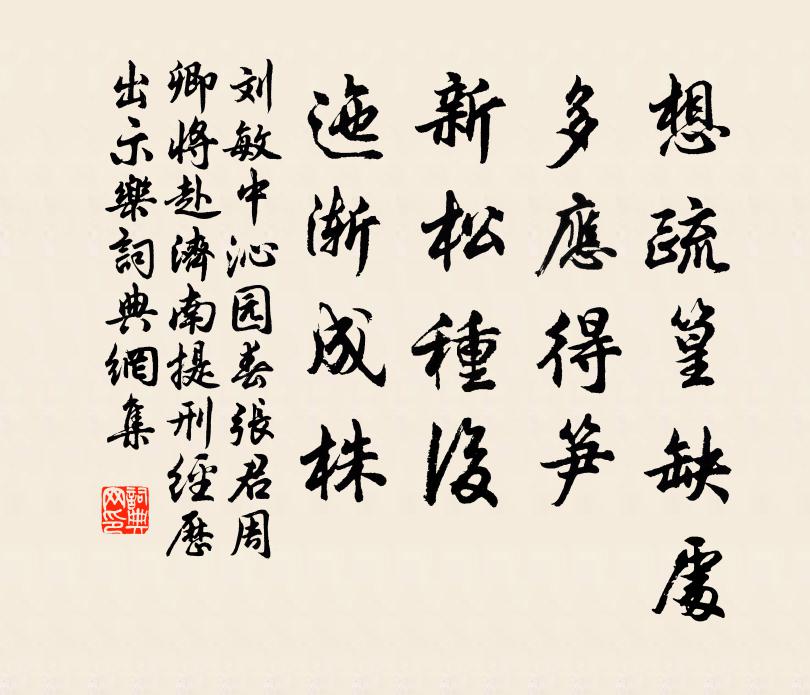 想疏篁缺處
多應得笋
新松種後
迤漸成株
刘敏中沁园春張君周
卿將赴濟南提刑經歷
出示樂詞典網集
詞典网印